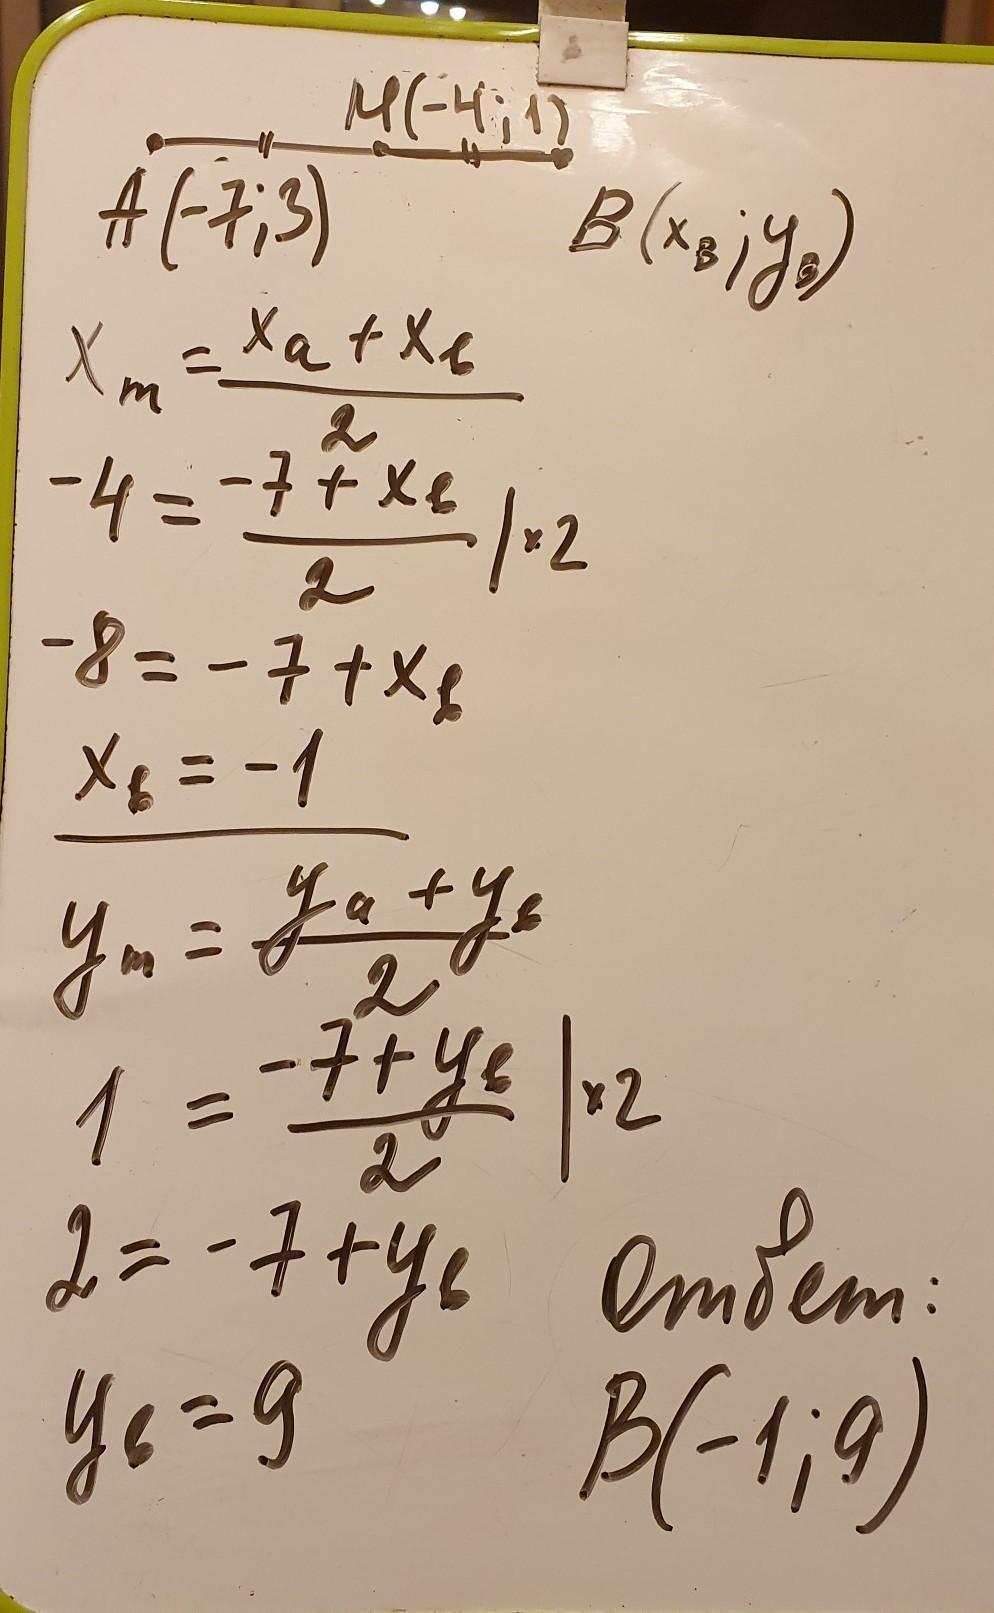 М(-4;1)
A(-7;3) B(x_B;y_B)
x_m = (x_a + x_в)/2
-4 = (-7 + x_в)/2 |×2
-8 = -7 + x_в
x_в = -1
y_m = (y_a + y_в)/2
1 = (-7 + y_в)/2 |×2
2 = -7 + y_в
y_в = 9
Ответ:
B(-1;9)